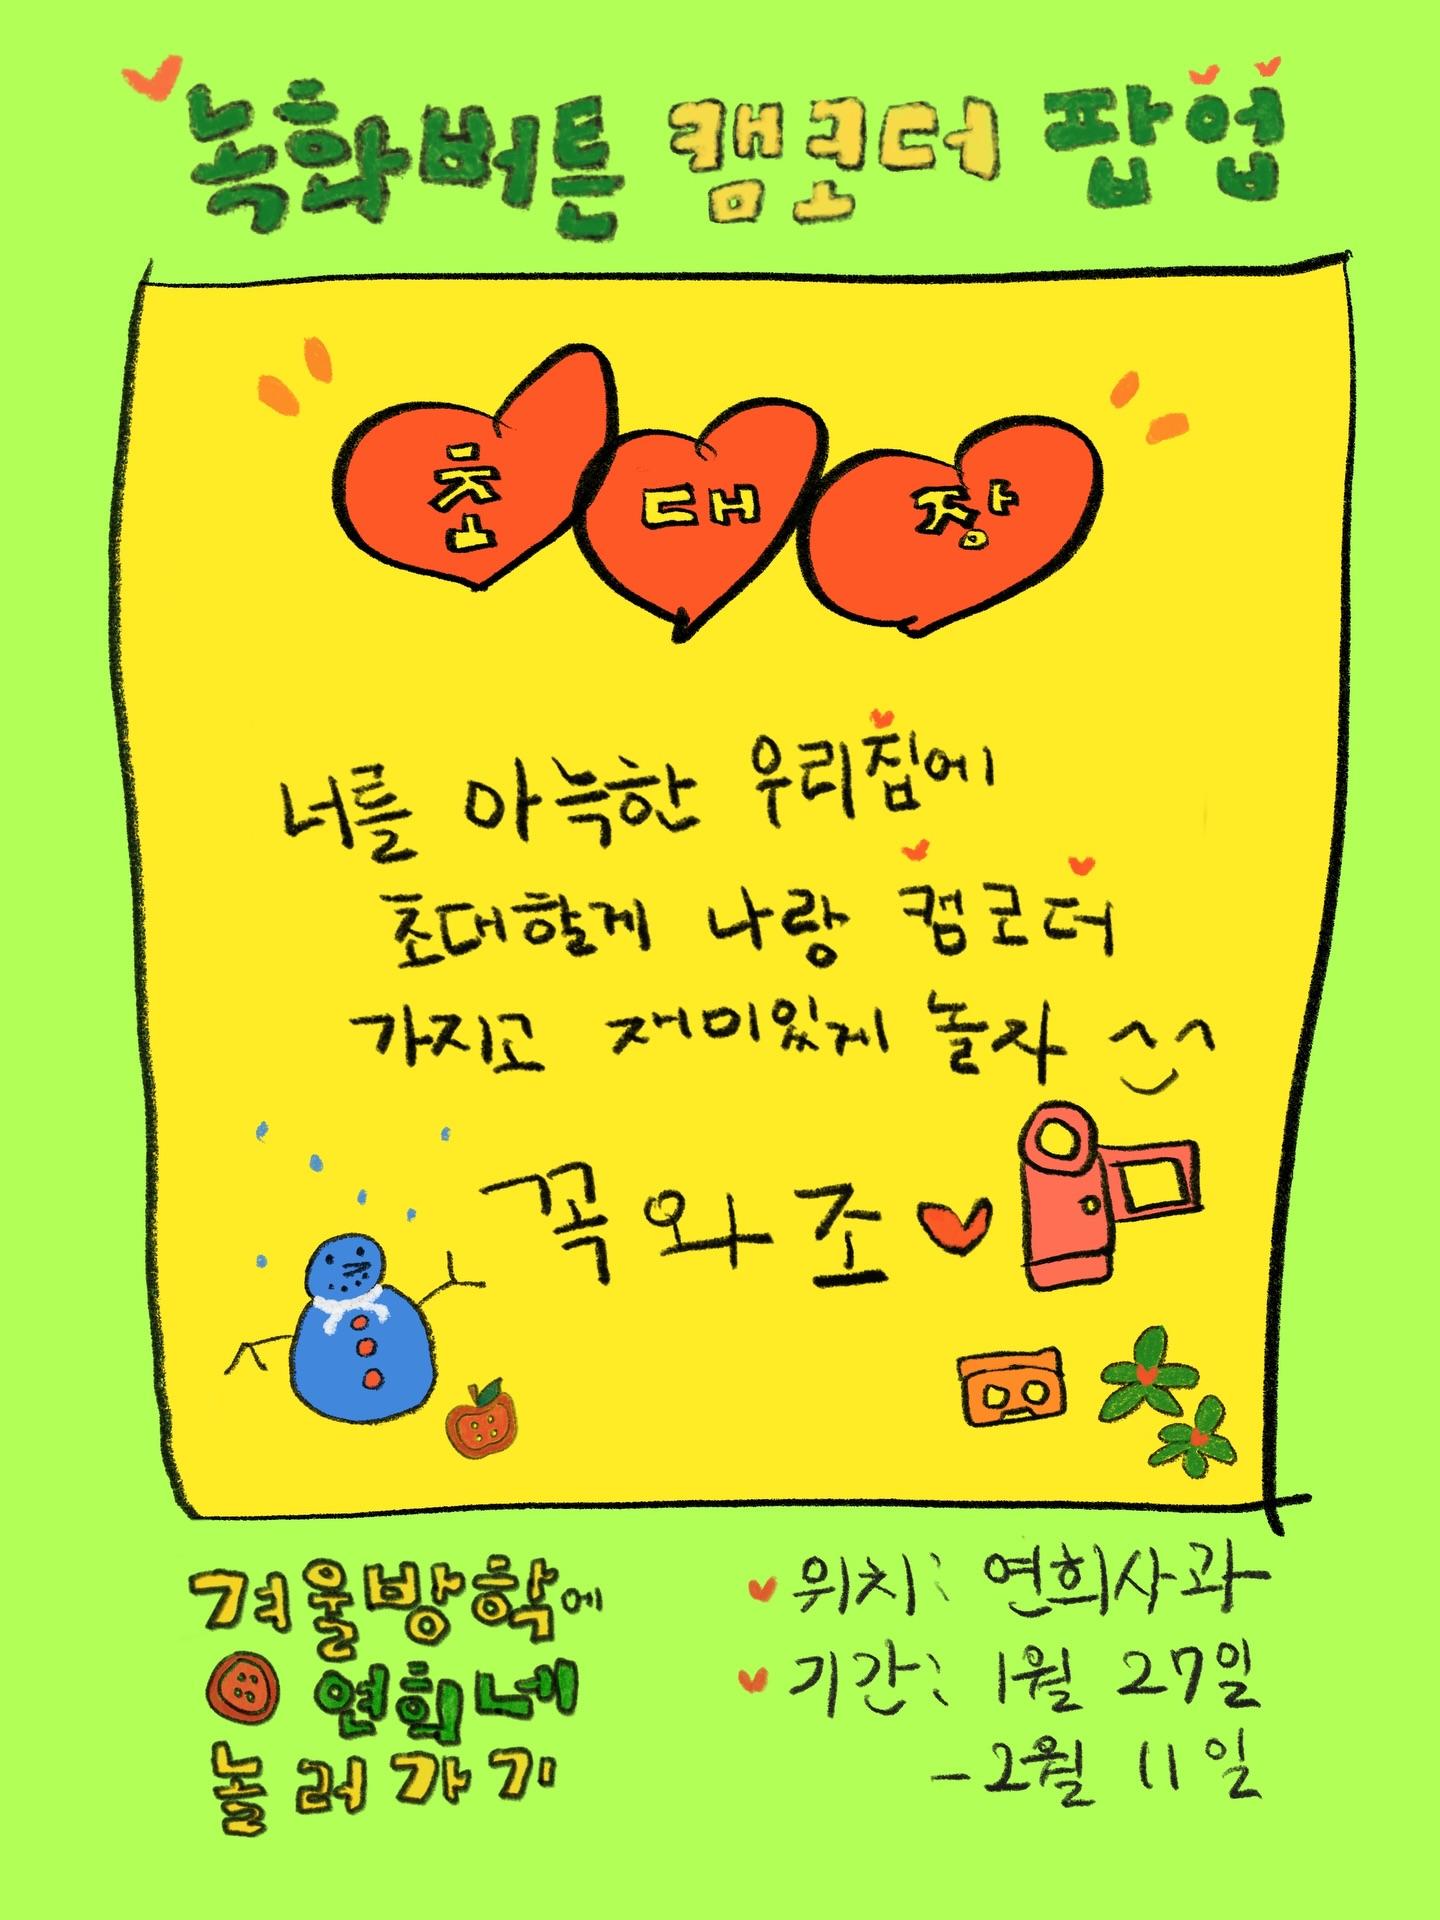 녹화버튼 캠코더 팝업
초대장
너를 아늑한 우리집에
초대할게 나랑 캠코더
가지고 재미있게 놀자 ^^
꼭 와 조
겨울방학에
연희네
놀러가기
위치: 연희사과
기간: 1월 27일
-2월 11일